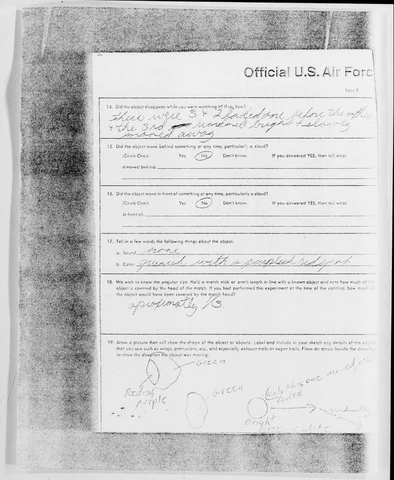 Official U.S. Air Forc
14. Did the object disappear while you were watching it? If so, how?
there were 3 & 2 faded one before the other
& the 3rd remained bright & slowly
moved away
15. Did the object move behind something at any time, particularly a cloud?
(Circle One): Yes No Don't know. If you answered YES, then tell what
it moved behind:
16. Did the object move in front of something at any time, particularly a cloud?
(Circle One): Yes No Don't know. If you answered YES, then tell what
in front of:
17. Tell in a few words the following things about the object:
a. Sound none
b. Color greenish with a purplish red spot
18. We wish to know the angular size. Hold a match stick at arm's length in line with a known object and note how much of the
object is covered by the head of the match. If you had performed this experiment at the time of the sighting, how much of
the object would have been covered by the match head?
aproximatly 1/3
19. Draw a picture that will show the shape of the object or objects. Label and include in your sketch any details of the object
that you saw such as wings, protrusions, etc., and especially exhaust trails or vapor trails. Place an arrow beside the drawing
to show the direction the object was moving.
Green
Red or
Purple
Green
only this one moved
faded
gradually
Bright